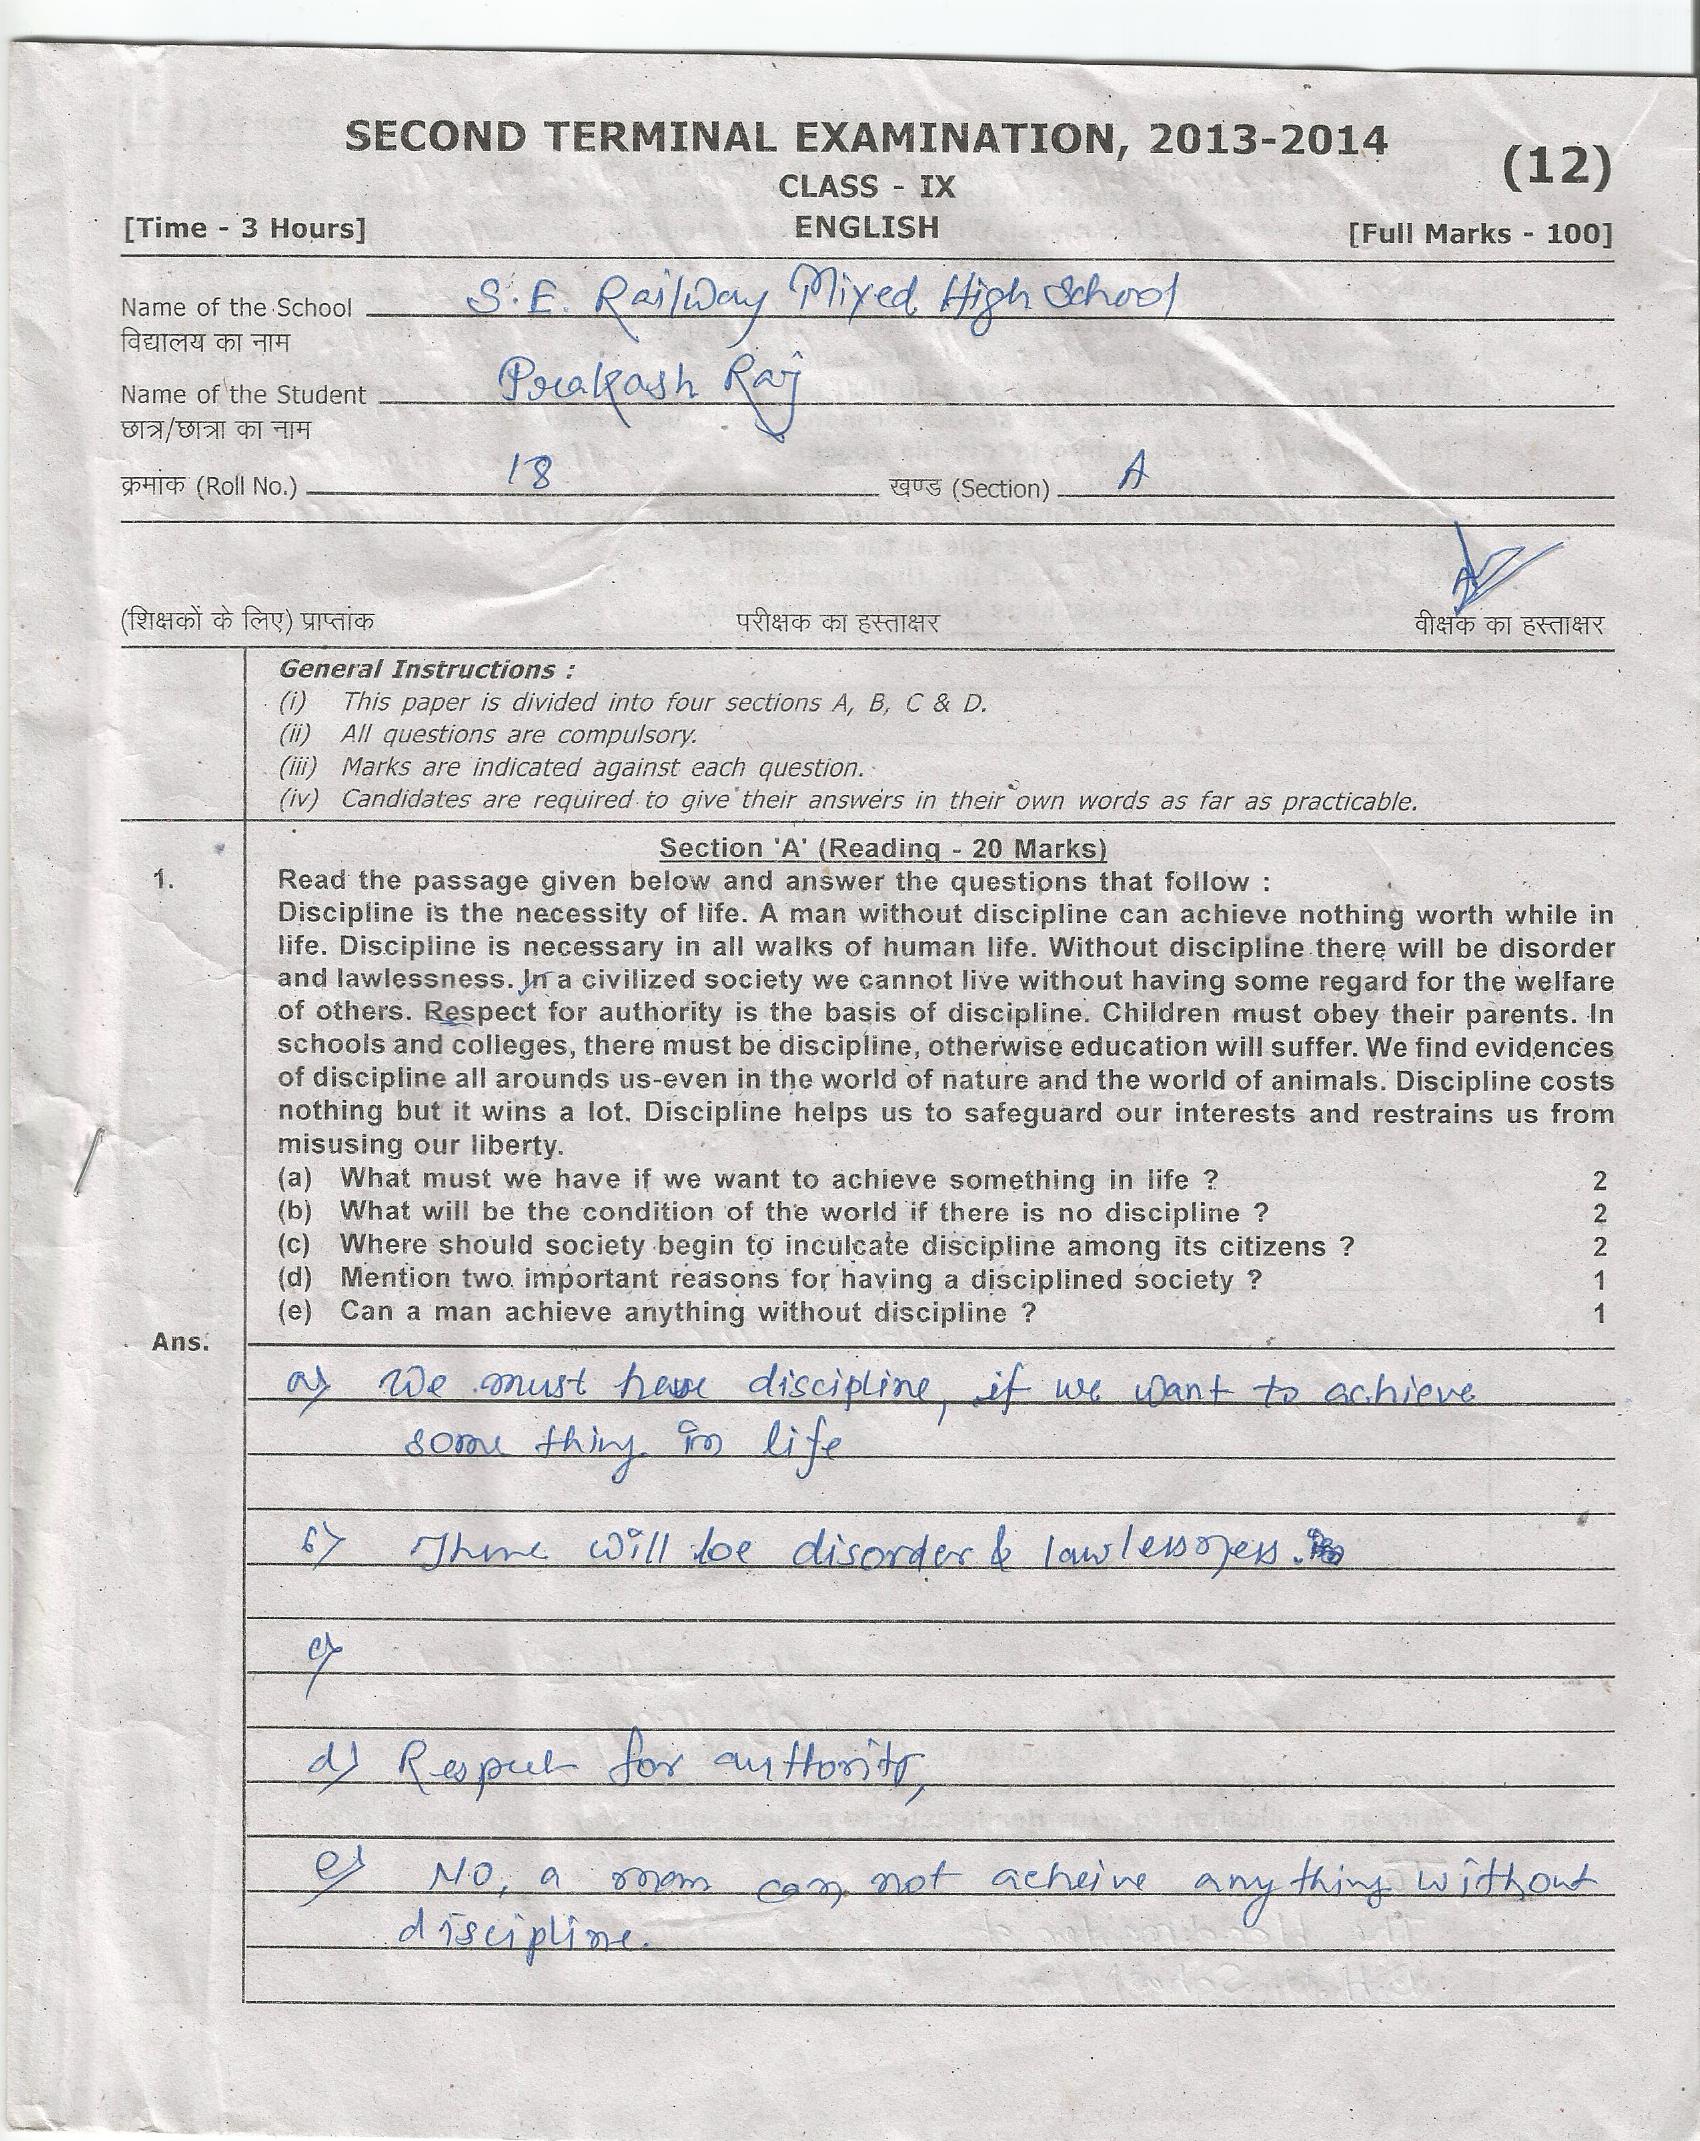 SECOND TERMINAL EXAMINATION, 2013-2014
(12)
CLASS - IX
[Time - 3 Hours] ENGLISH [Full Marks - 100]
Name of the School S.E. Railway Mixed High School
विद्यालय का नाम
Name of the Student Prakash Raj
छात्र/छात्रा का नाम
क्रमांक (Roll No.) 18 खण्ड (Section) A
(शिक्षकों के लिए) प्राप्तांक परीक्षक का हस्ताक्षर वीक्षक का हस्ताक्षर
General Instructions :
(i) This paper is divided into four sections A, B, C & D.
(ii) All questions are compulsory.
(iii) Marks are indicated against each question.
(iv) Candidates are required to give their answers in their own words as far as practicable.
Section 'A' (Reading - 20 Marks)
1. Read the passage given below and answer the questions that follow :
Discipline is the necessity of life. A man without discipline can achieve nothing worth while in
life. Discipline is necessary in all walks of human life. Without discipline there will be disorder
and lawlessness. In a civilized society we cannot live without having some regard for the welfare
of others. Respect for authority is the basis of discipline. Children must obey their parents. In
schools and colleges, there must be discipline, otherwise education will suffer. We find evidences
of discipline all arounds us-even in the world of nature and the world of animals. Discipline costs
nothing but it wins a lot. Discipline helps us to safeguard our interests and restrains us from
misusing our liberty.
(a) What must we have if we want to achieve something in life ? 2
(b) What will be the condition of the world if there is no discipline ? 2
(c) Where should society begin to inculcate discipline among its citizens ? 2
(d) Mention two important reasons for having a disciplined society ? 1
(e) Can a man achieve anything without discipline ? 1
Ans.
a) We must have discipline, if we want to achieve
some thing in life
b) There will be disorder & lawlessness.
c)
d) Respect for authority,
e) NO, a man can not acheive any thing without
discipline.